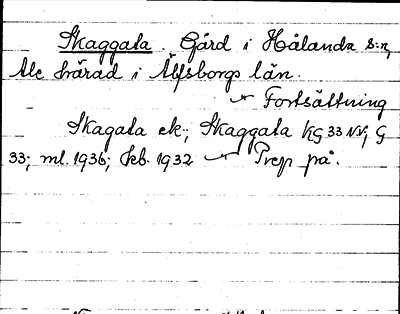 Skaggata. Gård i Hålanda s:n,
Ale härad i Älfsborgs län.
Fortsättning
Skagata ek; Skaggata KG 33 NV; G
33; ml. 1936; Jeb. 1932 Prep på.